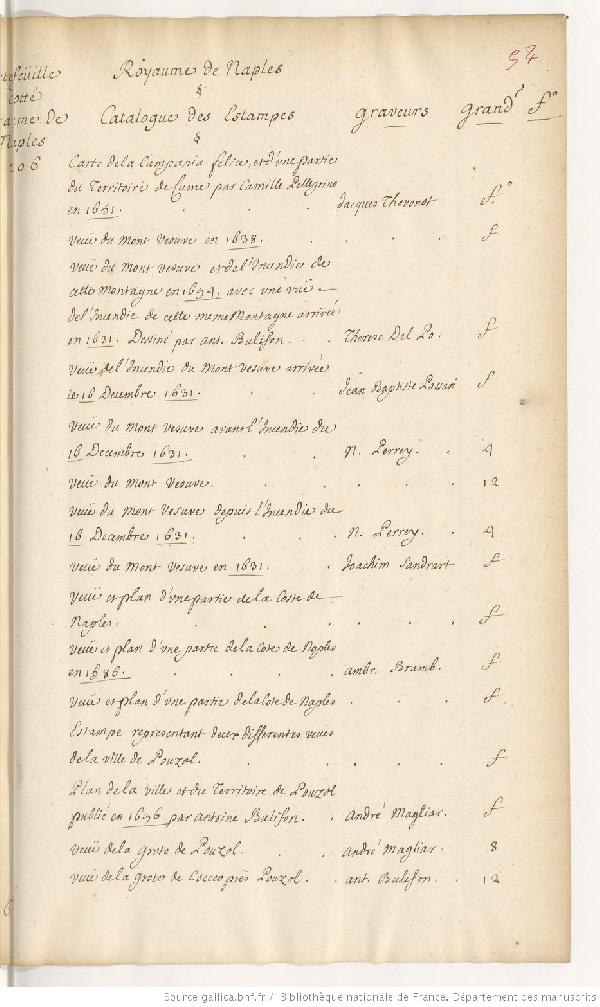 54
Royaume de Naples
§
Catalogue des Estampes graveurs grandr fo
§
tefeuille
cotté
aume de
Naples
206
Carte de la Campania felix, et d'une partie
du Territoire de Cume par Camille Pellegrino
en 1651. Jacques Thevenot fo
veüe du Mont Vesuve en 1638. f
veüe du mont vesuve et de l'Incendie de
cette Montagne en 1694. avec une veüe
de l'Incendie de cette meme Montagne arrivée
en 1631. Dessiné par ant. Bulifon. Therese Del Po. f
veüe de l'Incendie du Mont Vesuve arrivée
le 16 Decembre 1631. Jean Baptiste Passari f
veüe du Mont vesuve avant l'Incendie du
16 Decembre 1631. N. Perrey. 4
veüe du Mont Vesuve. 12
veüe du Mont Vesuve depuis l'Incendie du
16 Decembre 1631. N. Perrey. 4
veüe du Mont Vesuve en 1631. Joachim Sandrart f
Veüe et plan d'une partie de la Coste de
Naples. f
veüe et plan d'une partie de la Cote de Naples
en 1586. ambr. Bramb. f
veüe et plan d'une partie de la Cote de Naples f
Estampe representant deux differentes veües
de la ville de Pouzol. f
Plan de la ville et du Territoire de Pouzol
publié en 1696 par antoine Bulifon. André Magliar. f
veüe de la grote de Pouzol. André Magliar. 8
veüe de la grote de Cocceo près Pouzol. ant. Bulifon. 12
Source gallica.bnf.fr / Bibliothèque nationale de France. Département des manuscrits